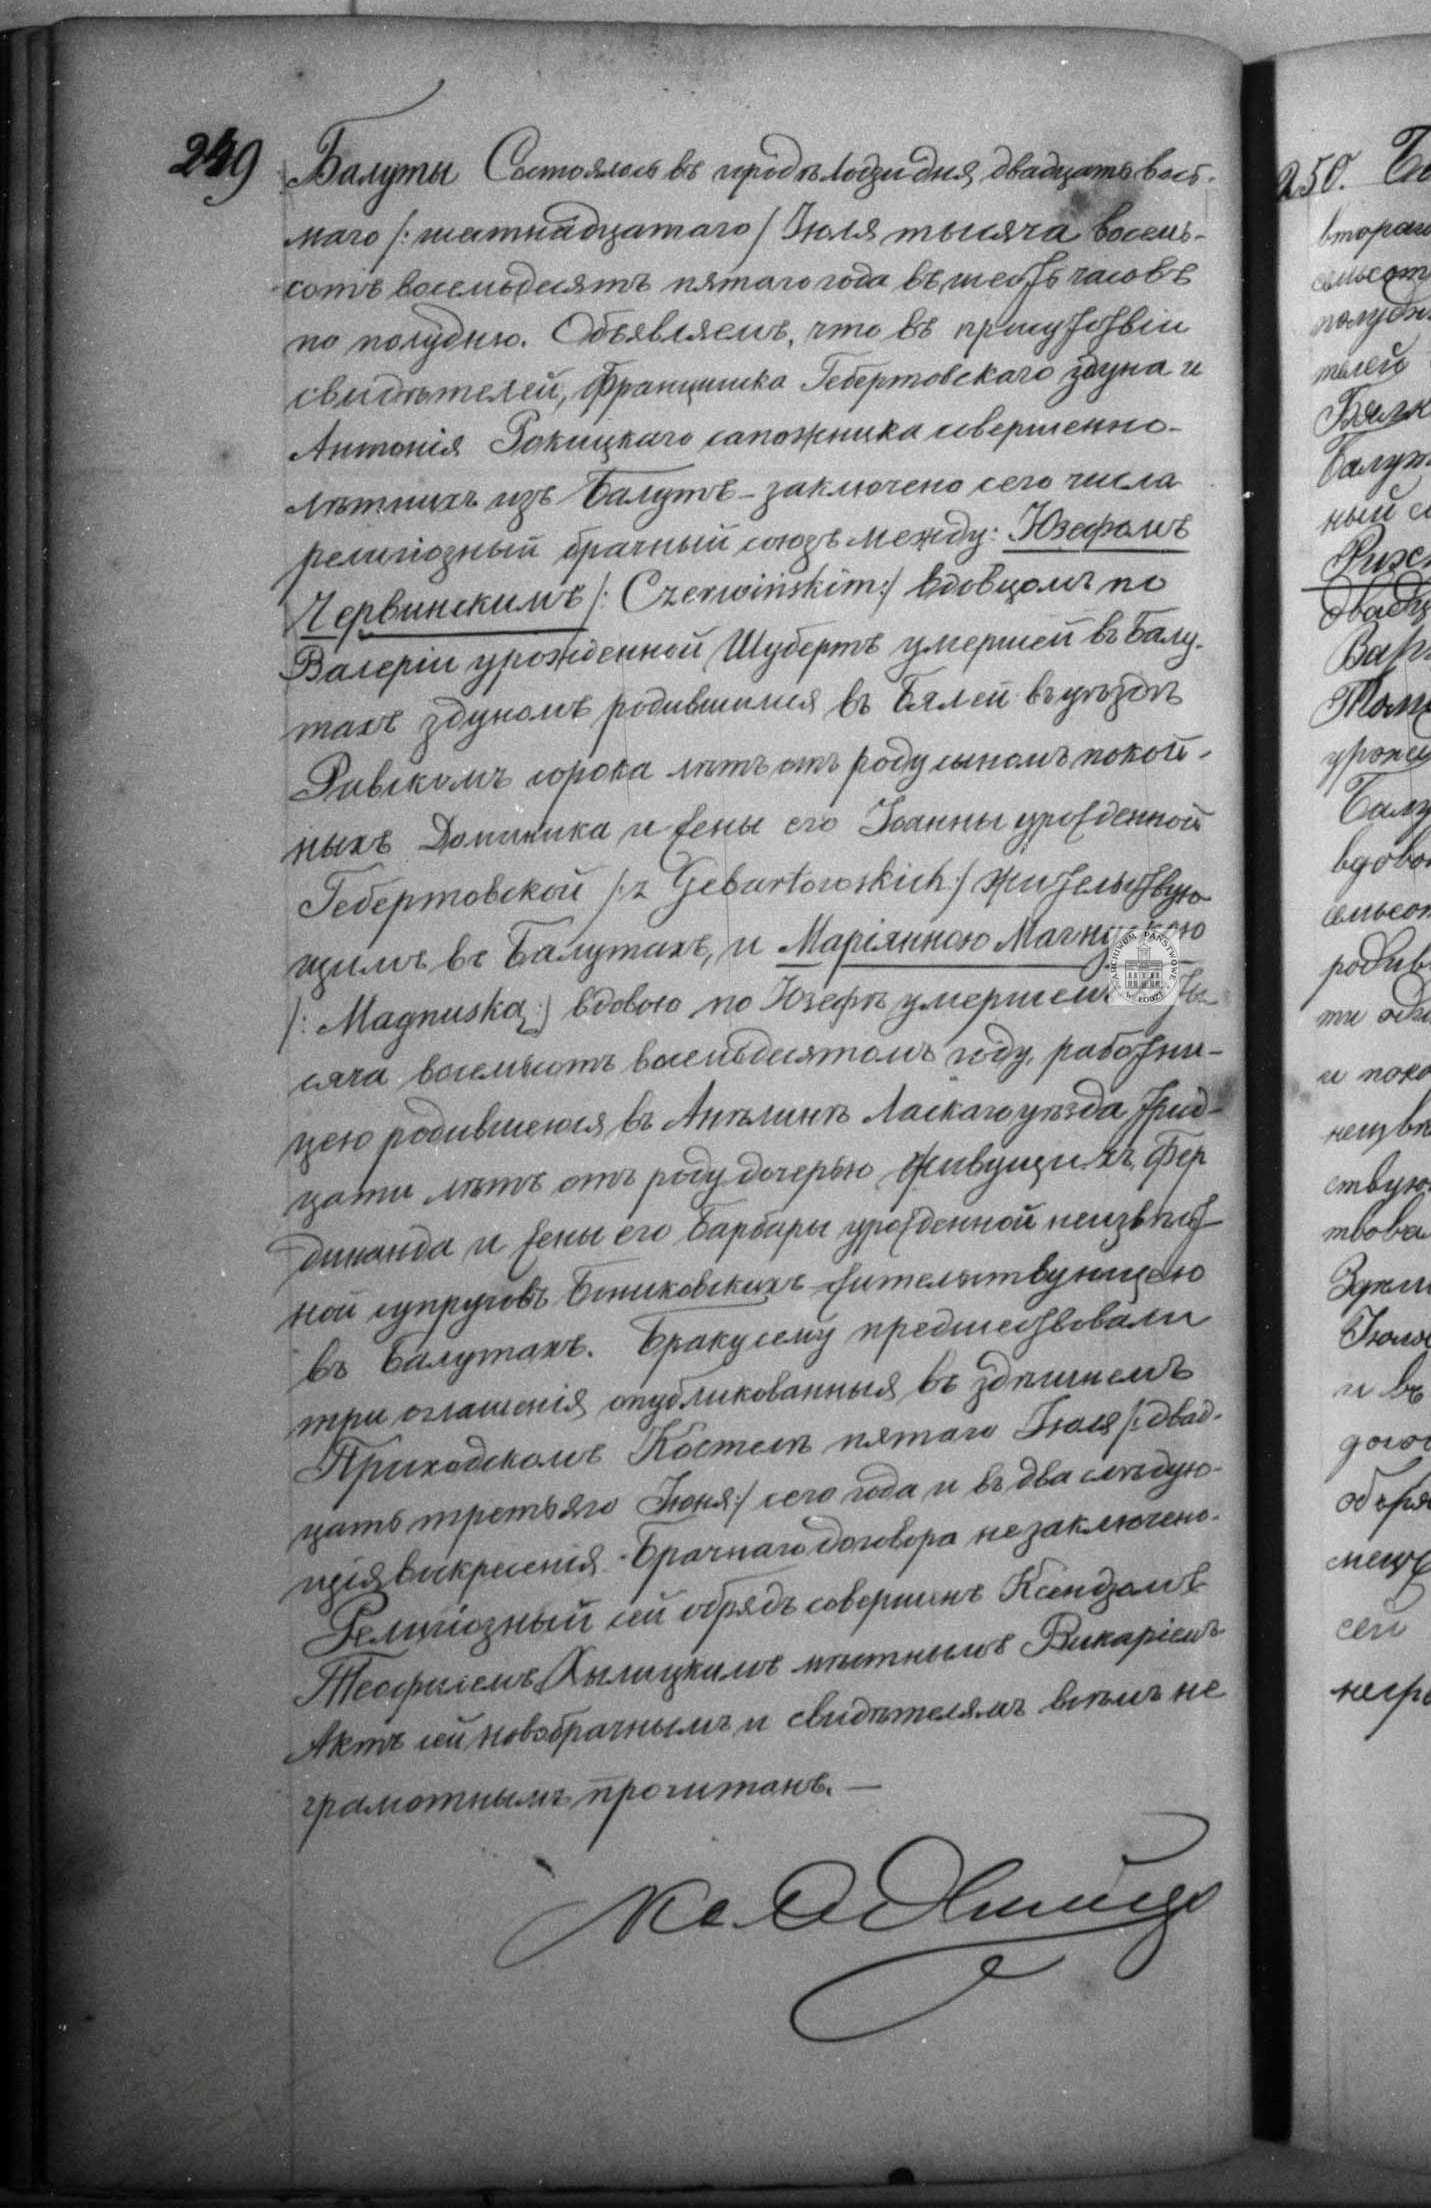 249
Балуты Состоялось въ городѣ Лодзи дня двадцать вось-
маго /: шестнадцатаго / Іюля тысяча восемь-
сотъ восемьдесятъ пятаго года въ шесть часовъ
по полудню. Объявляемъ, что въ присутствіи
свидѣтелей, Францишка Гебертовскаго здуна и
Антонія Рокицкаго сапожника совершенно-
лѣтнихъ изъ Балутъ - заключено сего числа
религіозный брачный союзъ между: Юзефомъ
Червинскимъ /: Czerwińskim :/ вдовцомъ по
Валеріи урожденной Шубертъ умершей въ Балу-
тахъ здуномъ родившимся въ Бялей въ уѣздѣ
Равскомъ сорока лѣтъ отъ роду сыномъ покой-
ныхъ Доминика и жены его Іоанны урожденной
Гебертовской /: z Gebertowskich :/ жительствую-
щимъ въ Балутахъ, и Маріянною Магнускою
/: Magnuską :/ вдовою по Юзефѣ умершемъ
сяча восемьсотъ восемьдесятомъ году, работни-
цею родившеюся въ Анѣлинѣ Ласкаго уѣзда трид-
цати лѣтъ отъ роду дочерью живущихъ Фер
динанда и жены его Барбары урожденной неизвѣст-
ной супруговъ жительствующею
въ Балутахъ. Браку сему предшествовали
три оглашенія опубликованныя въ здѣшнемъ
Приходскомъ Костелѣ пятаго Іюля /: двад-
цать третьяго Іюня :/ сего года и въ два слѣдую-
щія воскресенія. Брачнаго договора незаключено.
Религіозный сей обрядъ совершенъ Ксендзомъ
Теофилемъ мѣстнымъ Викаріемъ
Актъ сей новобрачнымъ и свидѣтелямъ всѣмъ не
грамотнымъ прочитанъ. —
ARCHIWUM PAŃSTWOWE W ŁODZI
250.
втораго
полудн
телей
Балут
ный с
двадц
Вар
урожд
Балу
вдово
родив
и поко
неизвѣ
ствую
Іюля
и въ
догов
обряд
сей
негра